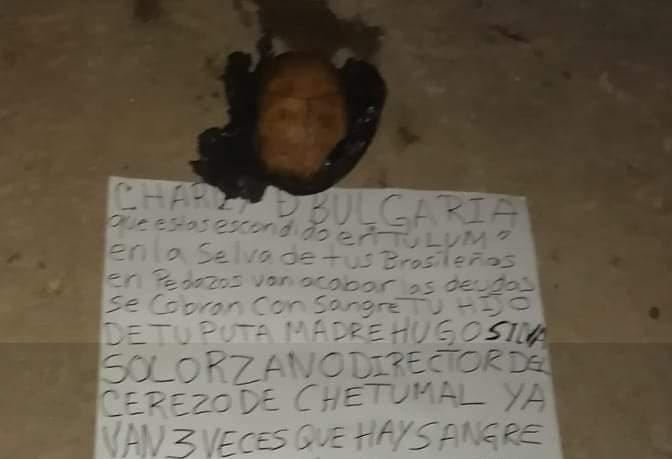 CHARLY D BULGARIA
que estas escondido en TULUM o
en la Selva de tus Brasileñas
en Pedazos van acabar las deudas
se Cobran Con Sangre TU HIJO
DE TU PUTA MADRE HUGO SILVA
SOLORZANO DIRECTOR DEL
CEREZO DE CHETUMAL YA
VAN 3 VECES QUE HAY SANGRE